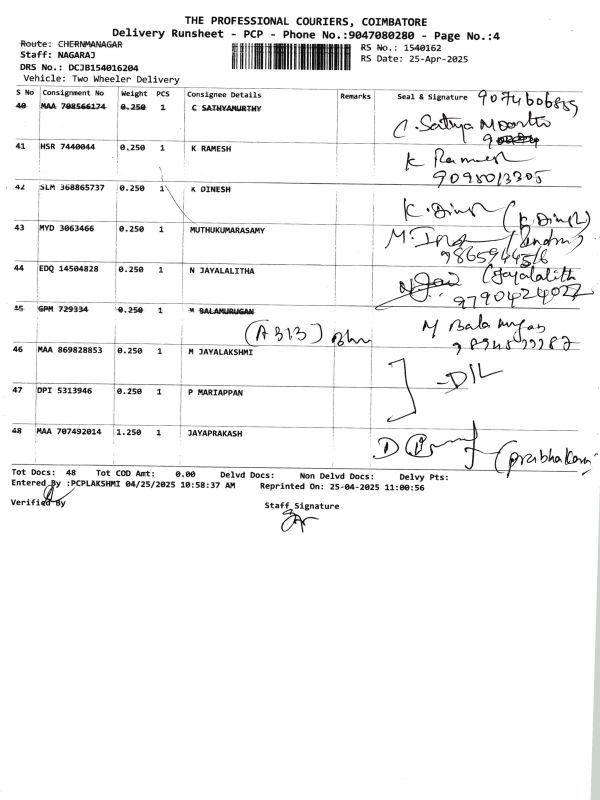 THE PROFESSIONAL COURIERS, COIMBATORE
Delivery Runsheet - PCP - Phone No.:9047080280 - Page No.:4
Route: CHERNMANAGAR
RS No.: 1540162
Staff: NAGARAJ
RS Date: 25-Apr-2025
DRS No.: DCJB154016204
Vehicle: Two Wheeler Delivery
S No Consignment No Weight PCS Consignee Details Remarks Seal & Signature
40 MAA 708566174 0.250 1 C SATHYAMURTHY
41 HSR 7440044 0.250 1 K RAMESH
K Ramesh
9098013305
42 SLM 368865737 0.250 1 K DINESH
K. Dinesh (K. Dinesh)
43 MYD 3063466 0.250 1 MUTHUKUMARASAMY
44 EDQ 14504828 0.250 1 N JAYALALITHA
(Jayalalith
9790424027
45 GPM 729334 0.250 1 M BALAMURUGAN
(A313)
46 MAA 869828853 0.250 1 M JAYALAKSHMI
47 DPI 5313946 0.250 1 P MARIAPPAN
48 MAA 707492014 1.250 1 JAYAPRAKASH
(prabhakaran)
Tot Docs: 48 Tot COD Amt: 0.00 Delvd Docs: Non Delvd Docs: Delvy Pts:
Entered By :PCPLAKSHMI 04/25/2025 10:58:37 AM Reprinted On: 25-04-2025 11:00:56
Verified By
Staff Signature